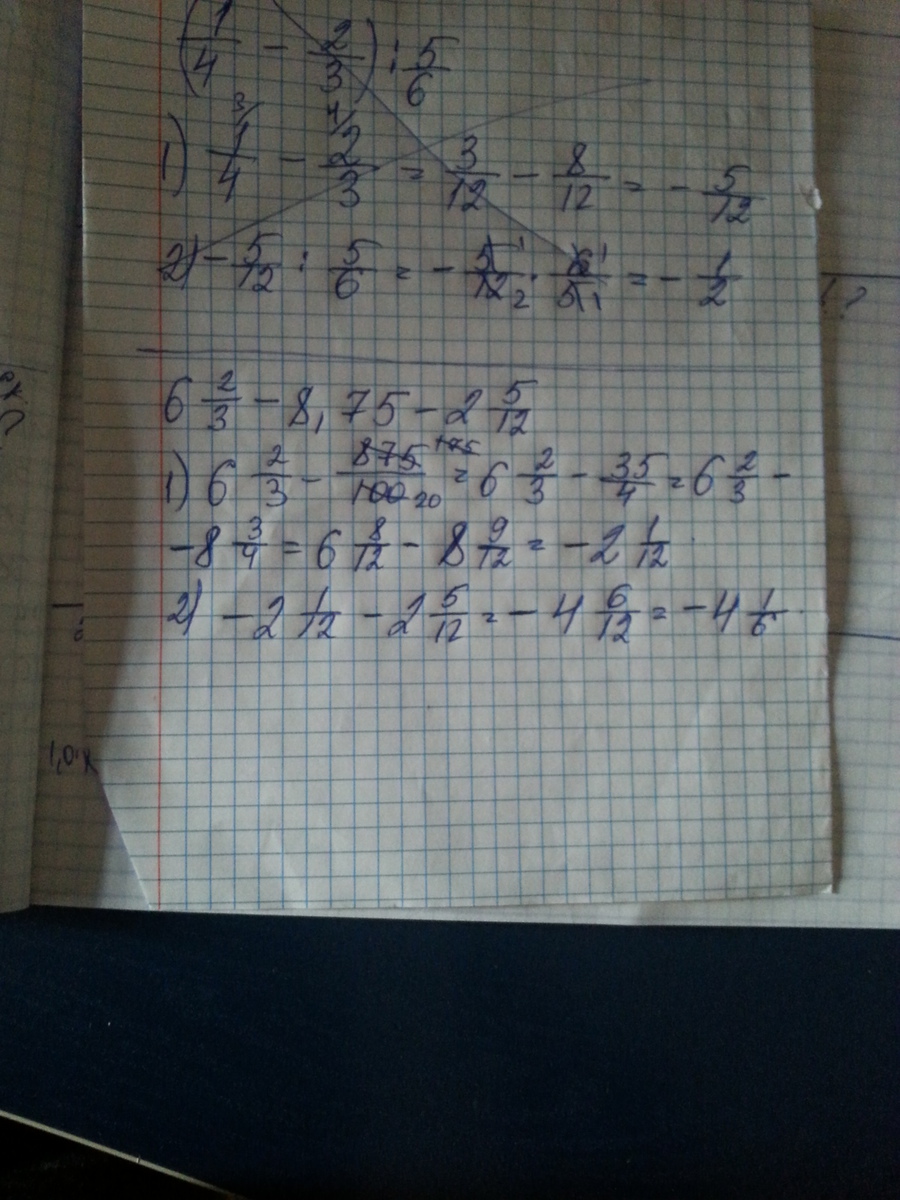 (1/4 - 2/3) : 5/6
1) 1/4 ³ - 2/3 ⁴ = 3/12 - 8/12 = - 5/12
2) - 5/12 : 5/6 = - 5¹/12₂ · 6¹/5₁ = - 1/2
6 2/3 - 8,75 - 2 5/12
1) 6 2/3 - 875/100 175/20 = 6 2/3 - 35/4 = 6 2/3 -
- 8 3/4 = 6 8/12 - 8 9/12 = - 2 1/12
2) - 2 1/12 - 2 5/12 = - 4 6/12 = - 4 1/6